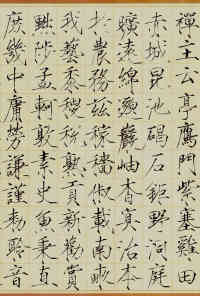 禪主云亭鴈門紫塞雞田
赤城昆池碣石鉅野洞庭
曠遠綿邈巖岫杳冥治本
於農務茲稼穡俶載南畝
我藝黍稷稅熟貢新勸賞
黜陟孟軻敦素史魚秉直
庶幾中庸勞謙謹敕聆音